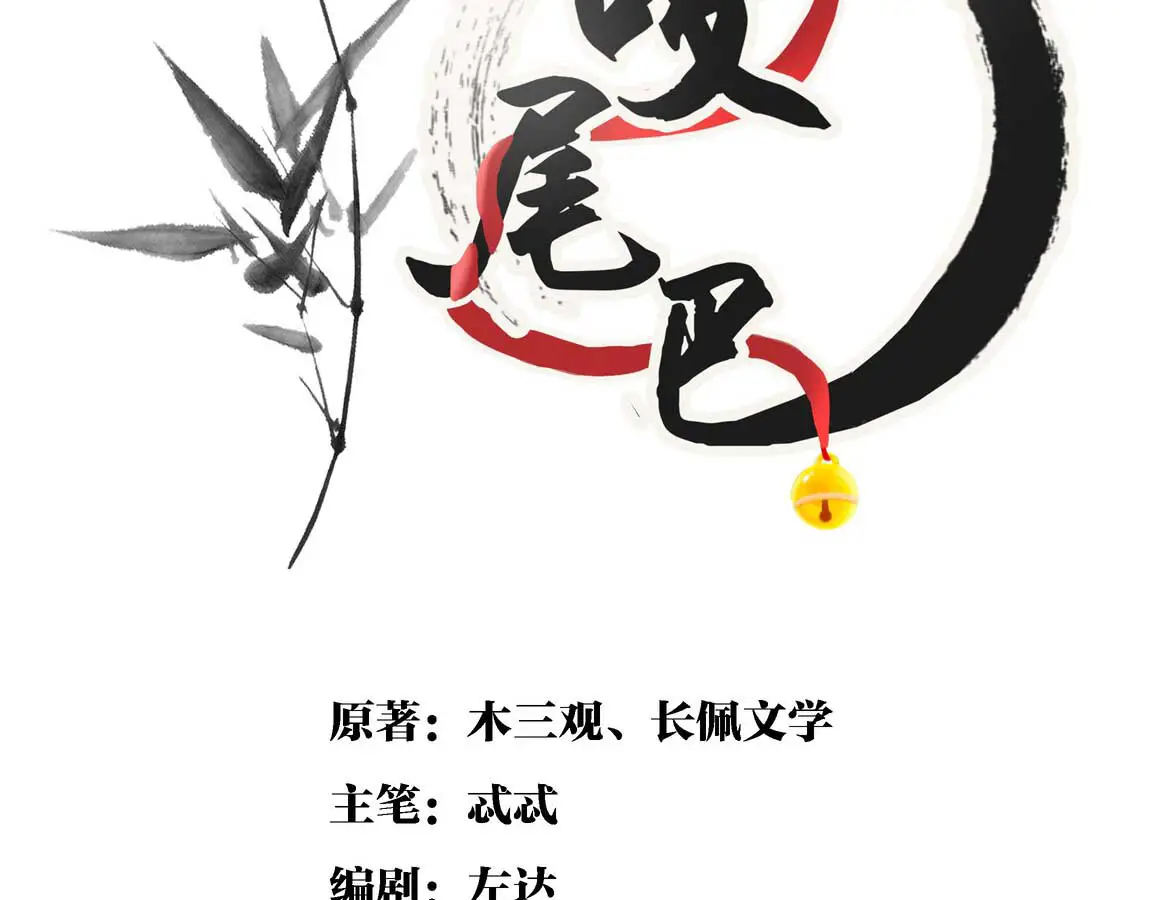 尾
巴
原著：木三观、长佩文学
主笔：忒忒
编剧：左达